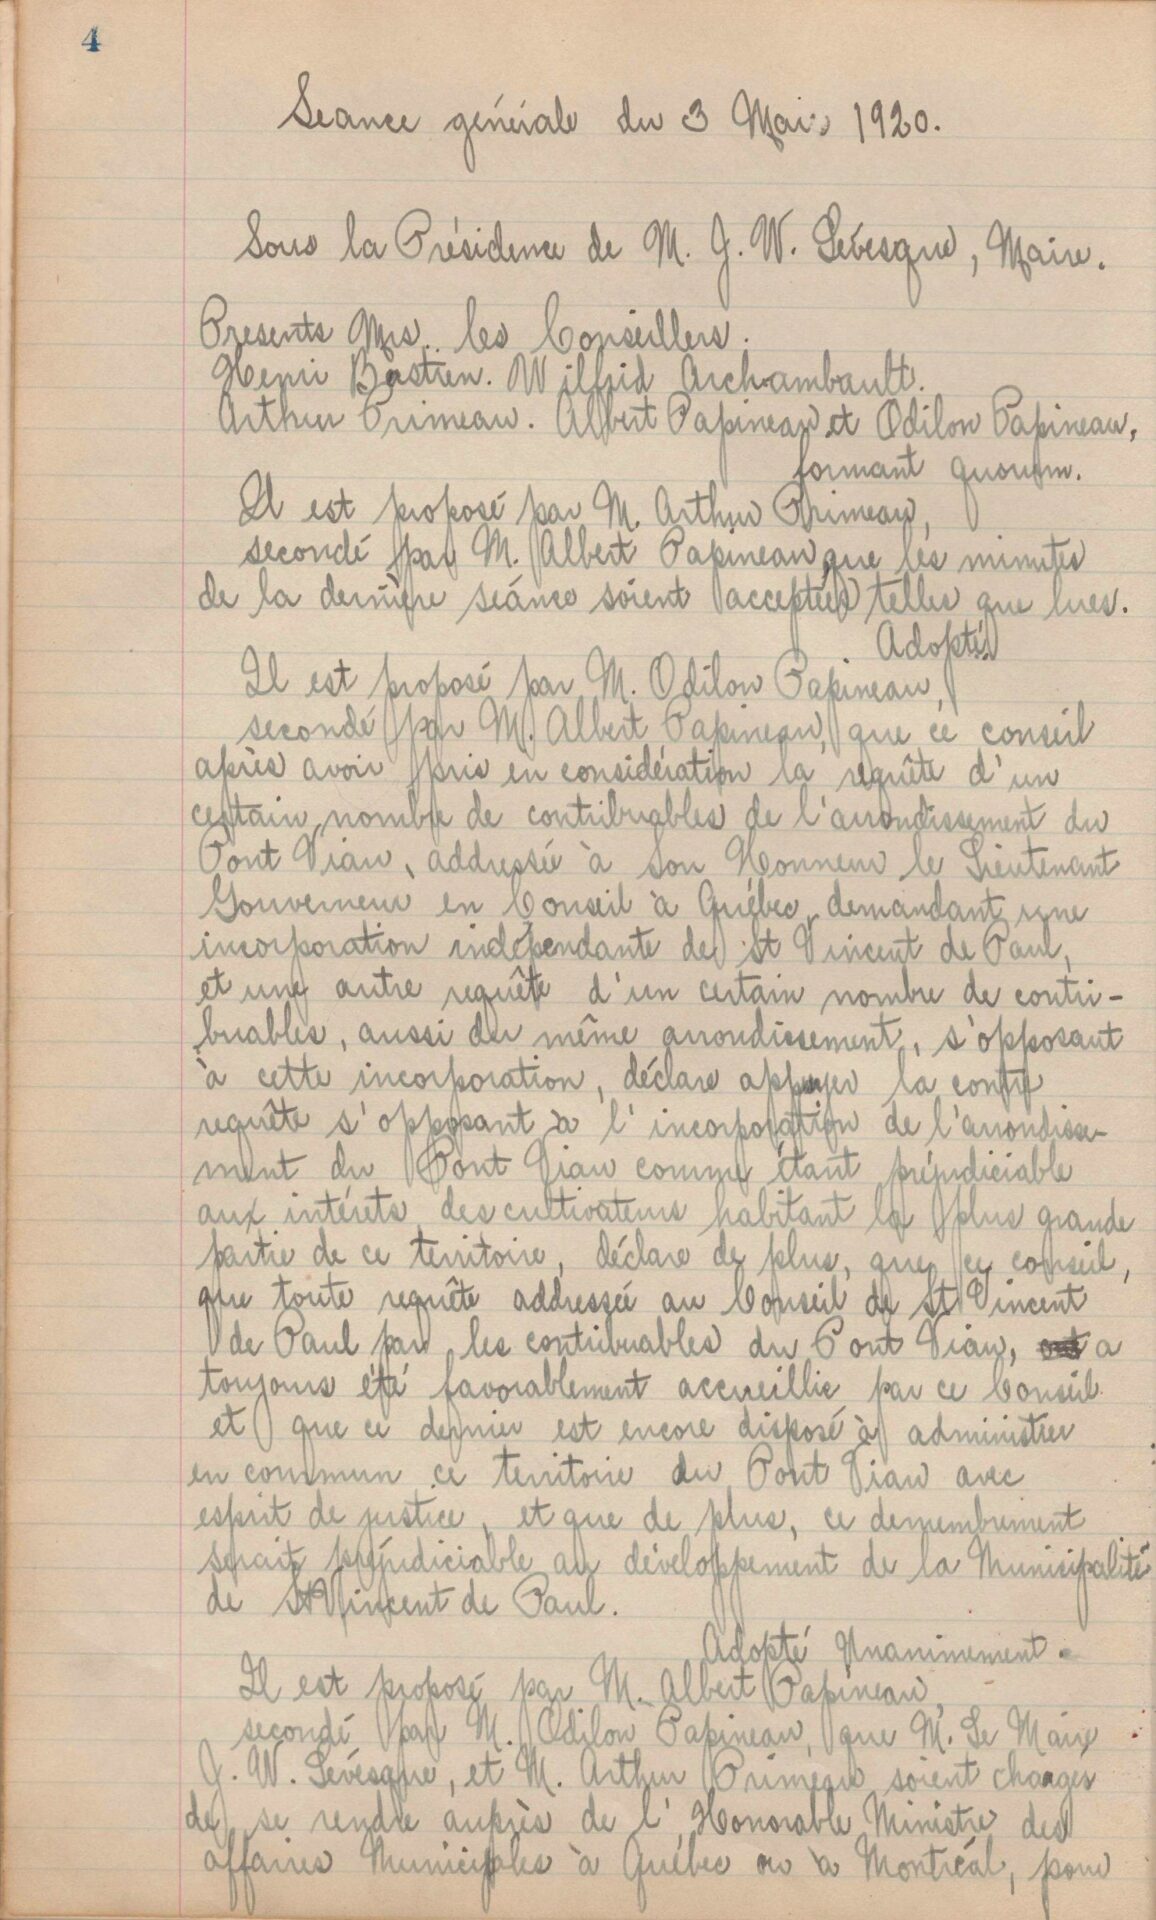 4
Seance générale du 3 Mai 1920.
Sous la Présidence de M. J. W. Lévesque, Maire.
Presents Mrs. les Conseillers.
Henri Bastien. Wilfrid Archambault.
Arthur Primeau. Albert Papineau et Odilon Papineau,
formant quorum.
Il est proposé par M. Arthur Primeau,
secondé par M. Albert Papineau que les minutes
de la dernière séance soient acceptées telles que lues.
Adopté.
Il est proposé par M. Odilon Papineau,
secondé par M. Albert Papineau, que ce conseil
après avoir pris en considération la requête d'un
certain nombre de contribuables de l'arrondissement du
Pont Viau, addressée à Son Honneur le Lieutenant
Gouverneur en Conseil à Québec, demandant une
incorporation indépendante de St Vincent de Paul,
et une autre requête d'un certain nombre de contri-
buables, aussi du même arrondissement, s'opposant
à cette incorporation, déclare appuyer la contre
requête s'opposant à l'incorporation de l'arrondisse-
ment du Pont Viau comme étant préjudiciable
aux intérets des cultivateurs habitant la plus grande
partie de ce territoire, déclare de plus, que ce conseil,
que toute requête addressée au Conseil de St Vincent
de Paul par les contribuables du Pont Viau, a
toujours été favorablement accueillie par ce Conseil
et que ce dernier est encore disposé à administrer
en commun ce territoire du Pont Viau avec
esprit de justice, et que de plus, ce demembrement
serait préjudiciable au développement de la Municipalité
de St Vincent de Paul.
Adopté Unanimement.
Il est proposé par M. Albert Papineau,
secondé par M. Odilon Papineau, que M. Le Maire
J. W. Lévesque, et M. Arthur Primeau soient charges
de se rendre auprès de l'Honorable Ministre des
affaires Municipales à Québec ou à Montréal, pour